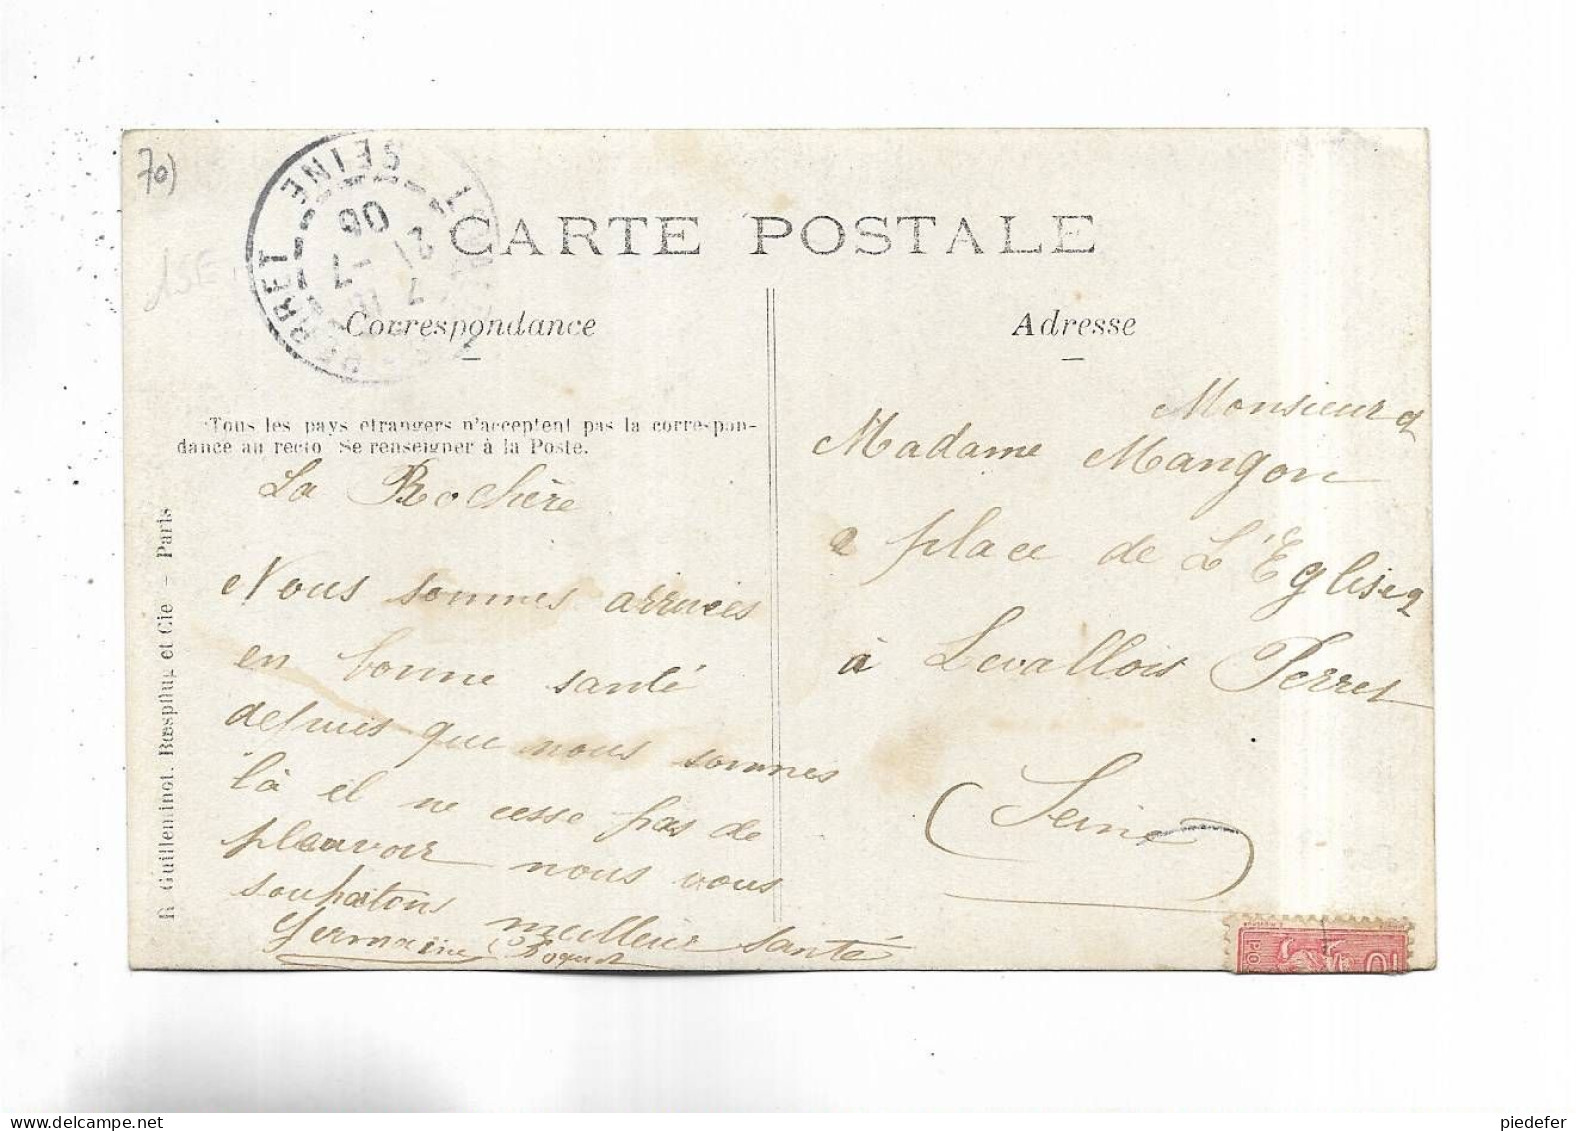 70)
1SE
LEVALLOIS-PERRET
SEINE
7
21 -7
06
CARTE POSTALE
Correspondance
Adresse
Tous les pays étrangers n'acceptent pas la correspon-
dance au recto Se renseigner à la Poste.
R. Guilleminot, Bœspflug et Cie – Paris
La Rochère
Nous sommes arrivées
en bonne santé
depuis que nous sommes
là il ne cesse pas de
pleuvoir nous vous
souhaitons meilleur santé
Germaine
Monsieur et
Madame Mangon
2 place de L'Eglise 2
à Levallois Perret
(Seine)
10
piedefer